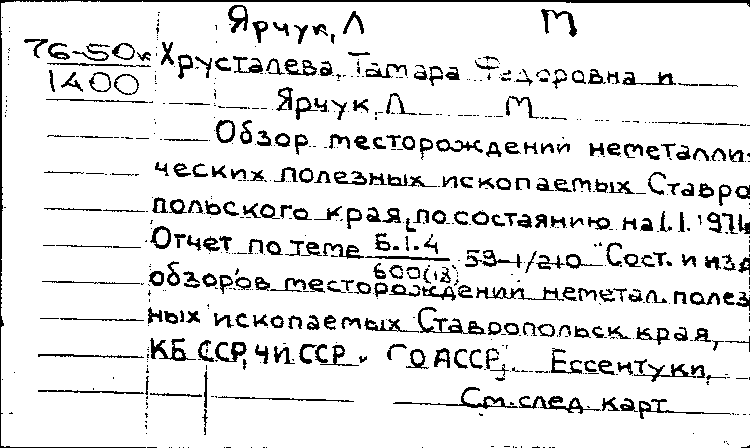 Ярчук, Л М
76-50к Хрусталева, Тамара Федоровна и
1400
Ярчук, Л М
Обзор месторождений неметалли-
ческих полезных ископаемых Ставро
польского края, по состаянию на 1.1.1971
Отчет по теме Б.1.4/600(18) 59-1/210 "Сост. и изд
обзоров месторождений неметал. полез
ных ископаемых Ставропольск края,
КБ ССР, ЧИ ССР и СО АССР". Ессентуки,
См. след карт